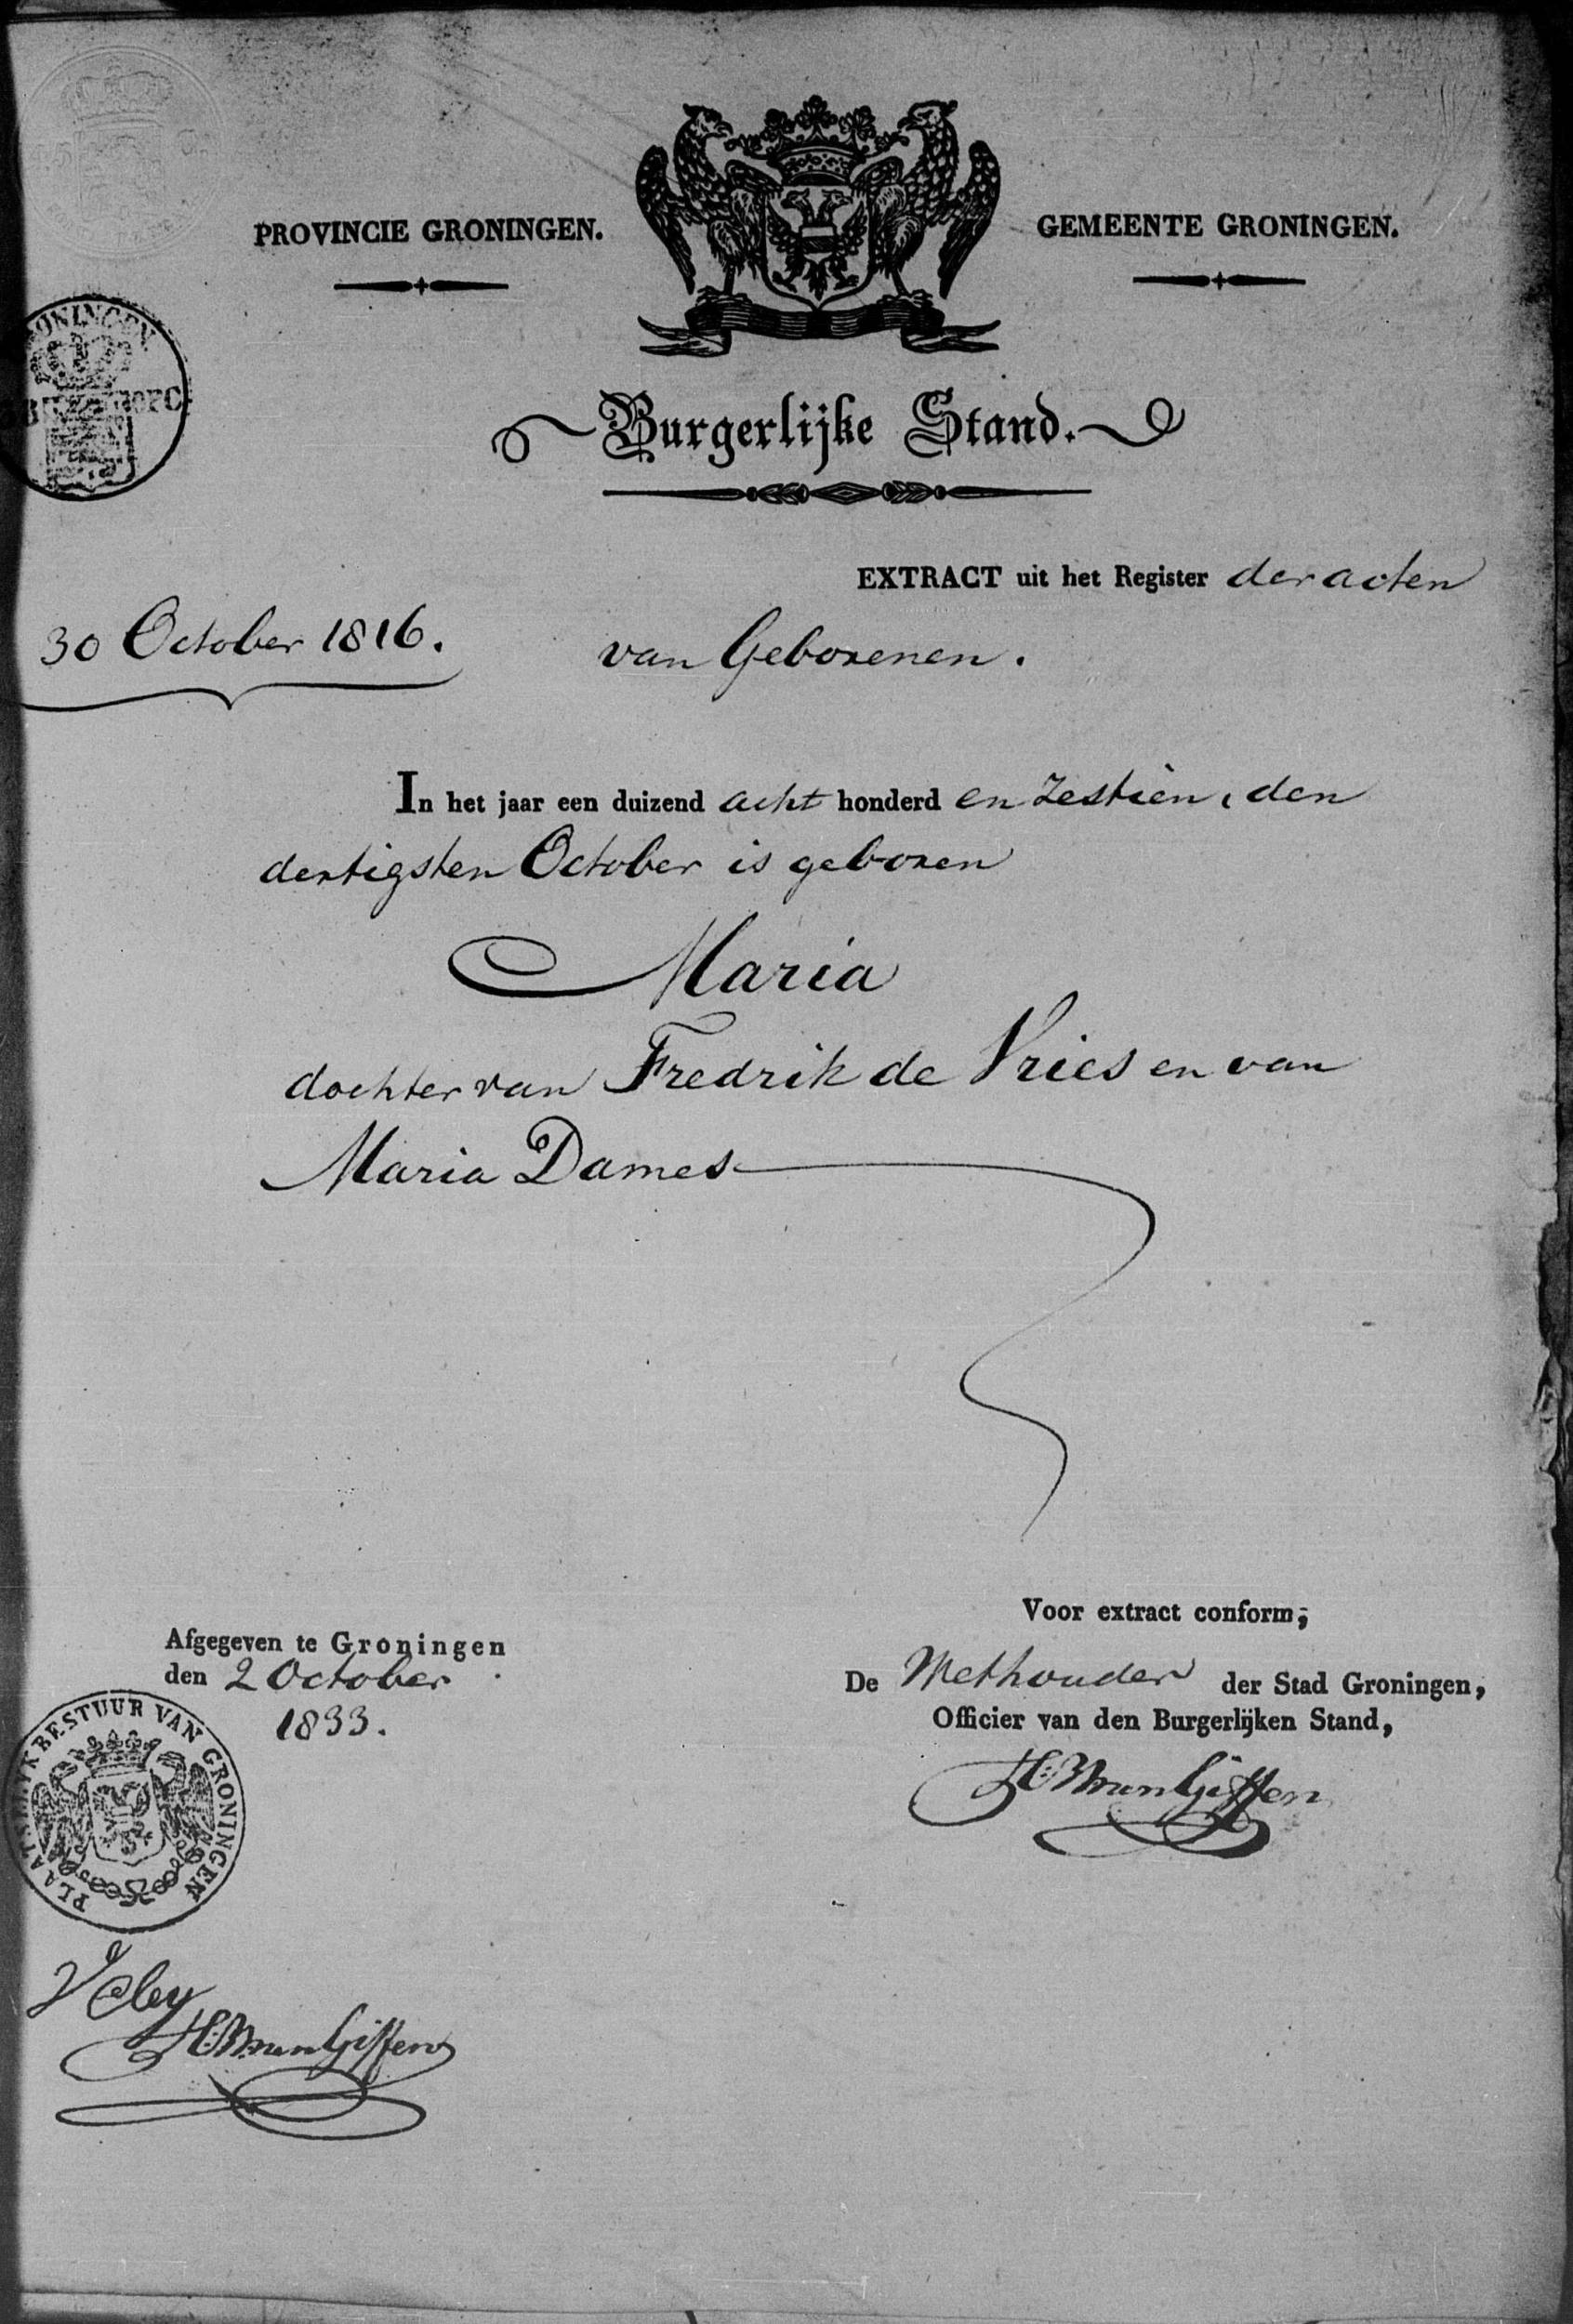 PROVINCIE GRONINGEN.
GEMEENTE GRONINGEN.
Burgerlijke Stand.
EXTRACT uit het Register der acten
30 October 1816.
van Geborenen.
In het jaar een duizend acht honderd en zestien, den
dertigsten October is geboren
Maria
dochter van Fredrik de Vries en van
Maria Dames
Voor extract conform,
Afgegeven te Groningen
den 2 October
1833.
De Wethouder der Stad Groningen,
Officier van den Burgerlijken Stand,
PLAATSELIJK BESTUUR VAN GRONINGEN